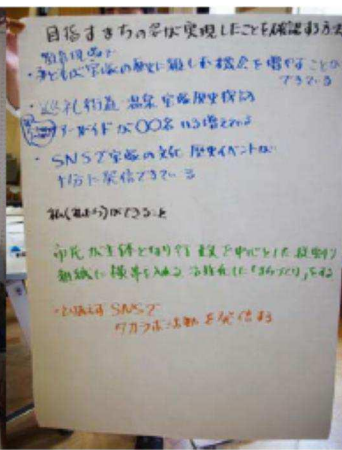 目指すまちの姿が実現したことを確認する方法
教育現場で
・子どもが宝塚の歴史に親しむ機会を増やすことが
できている
・巡礼街道 温泉 宝塚歴史
ガイドが〇〇名 増えている
・SNSで宝塚の文化 歴史イベントが
十分に発信できている
私(私たち)ができること
市民が主体となり行政で中心とした
組織に横串を入れる した「まちづくり」をする
SNSで
タカラ 活動を発信する